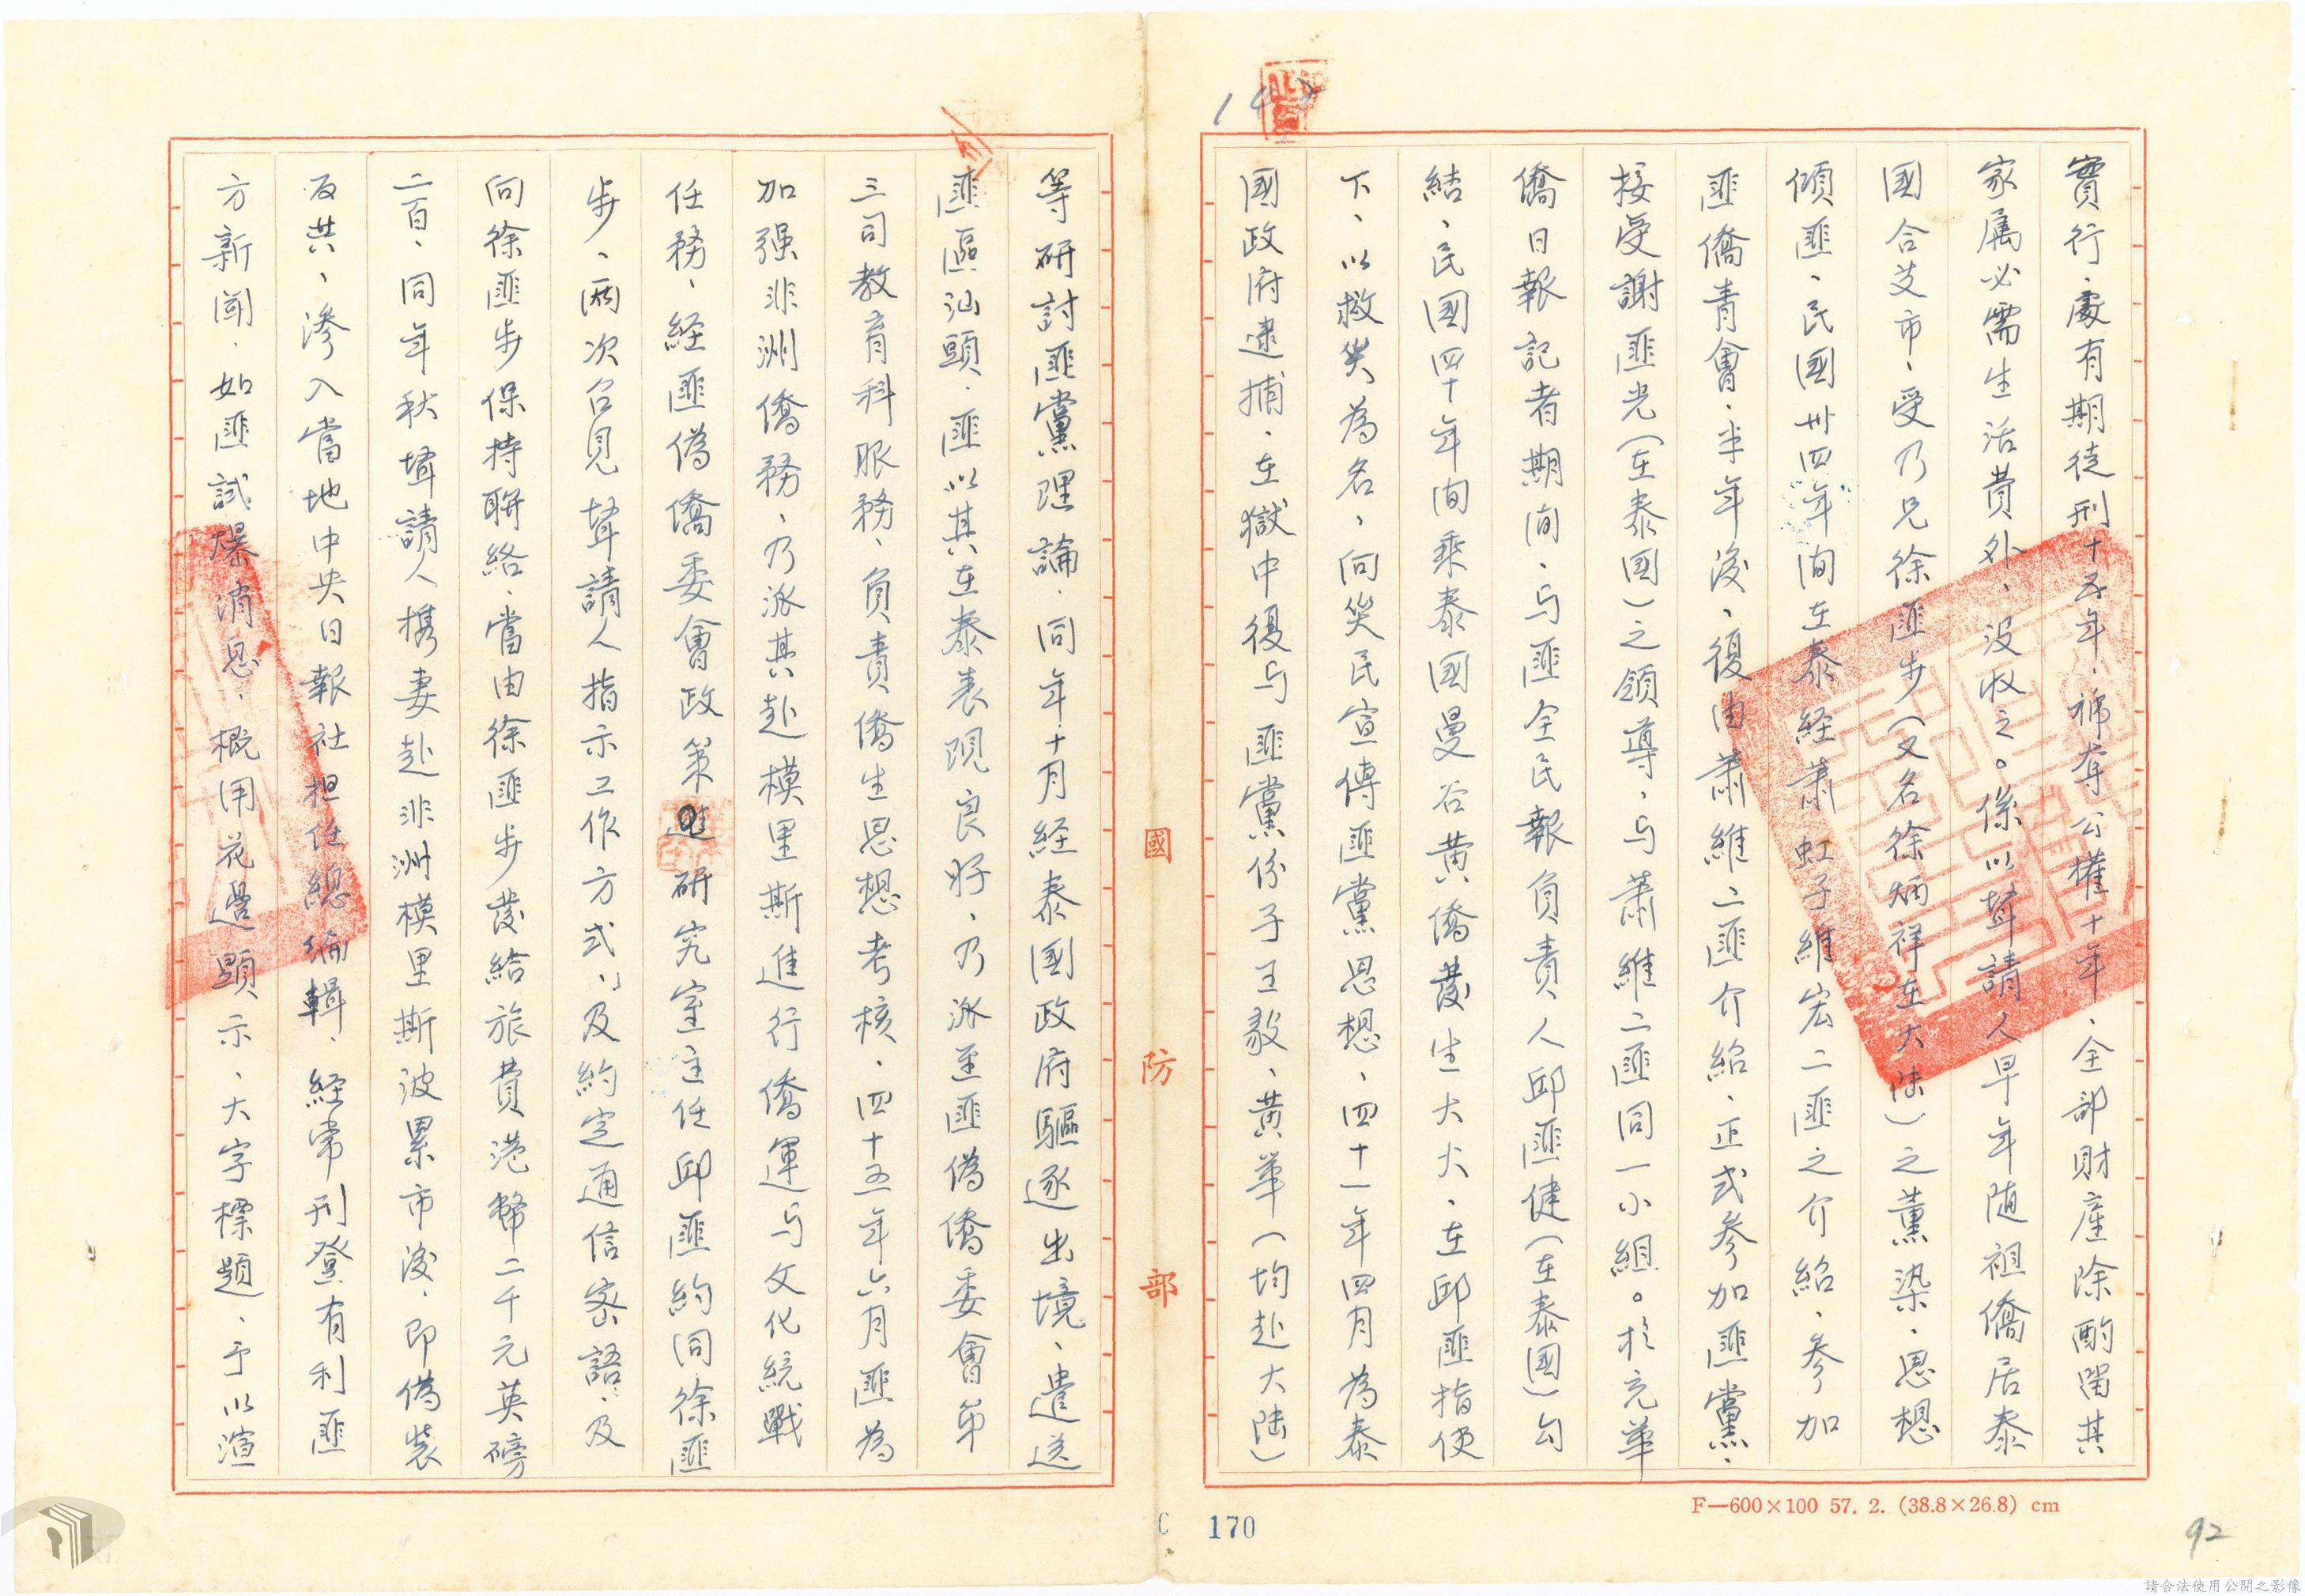 實行、處有期徒刑十五年、褫奪公權十年、全部財產除酌留其
家屬必需生活費外、沒收之。係以聲請人早年随祖僑居泰
國合艾市、受乃兄徐匪步（又名徐炳祥在大陆）之薰染、思想
傾匪、民國卅四年间在泰経蕭虹子維宏二匪之介紹、参加
匪僑青會、半年後、復由蕭維二匪介紹、正式參加匪黨、
接受謝匪光（在泰國）之領導、与蕭維二匪同一小組。於充華
僑日報記者期间、与匪全民報負責人邱匪健（在泰國）勾
結、民國四十年间乘泰國曼谷黄僑發生大火、在邱匪指使
下、以救災為名、向災民宣傳匪黨思想、四十一年四月為泰
國政府逮捕、在獄中復与匪黨份子王毅、黄華（均赴大陆）
等研討匪黨理論、同年十月経泰国政府驅逐出境、遣送
匪區汕頭、匪以其在泰表現良好、乃派至匪偽僑委會第
三司教育科服務、負責僑生思想考核、四十五年六月匪為
加强非洲僑務、乃派其赴模里斯進行僑運与文化統戰
任務、経匪偽僑委會政策研究室主任邱匪約同徐匪
步、兩次召見聲請人指示工作方式、及約定通信密語、及
向徐匪步保持聯絡、當由徐匪步發給旅費港幣二千元英磅
二百、同年秋聲請人携妻赴非洲模里斯波累市後、即偽裝
反共、滲入當地中央日報社担任總编輯、経常刊登有利匪
方新闻、如匪試爆消息、概用花邊顯示、大字標題、予以渲
國防部
F—600×100 57. 2. (38.8×26.8) cm
170
92
請合法使用公開之影像